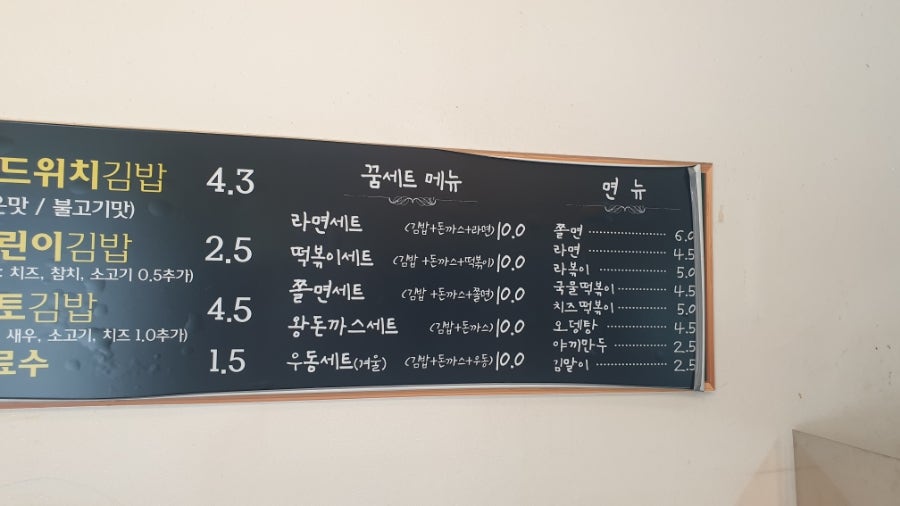 드위치김밥 4.3
은맛 / 불고기맛)
린이김밥 2.5
: 치즈, 참치, 소고기 0.5추가)
토김밥 4.5
새우, 소고기, 치즈 1.0추가)
료수 1.5
꿈세트 메뉴
라면세트 (김밥+돈까스+라면) 10.0
떡볶이세트 (김밥+돈까스+떡볶이) 10.0
쫄면세트 (김밥+돈까스+쫄면) 10.0
왕돈까스세트 (김밥+돈까스) 10.0
우동세트(겨울) (김밥+돈까스+우동) 10.0
면 뉴
쫄면 6.0
라면 4.5
라볶이 5.0
국물떡볶이 4.5
치즈떡볶이 5.0
오뎅탕 4.5
야끼만두 2.5
김말이 2.5